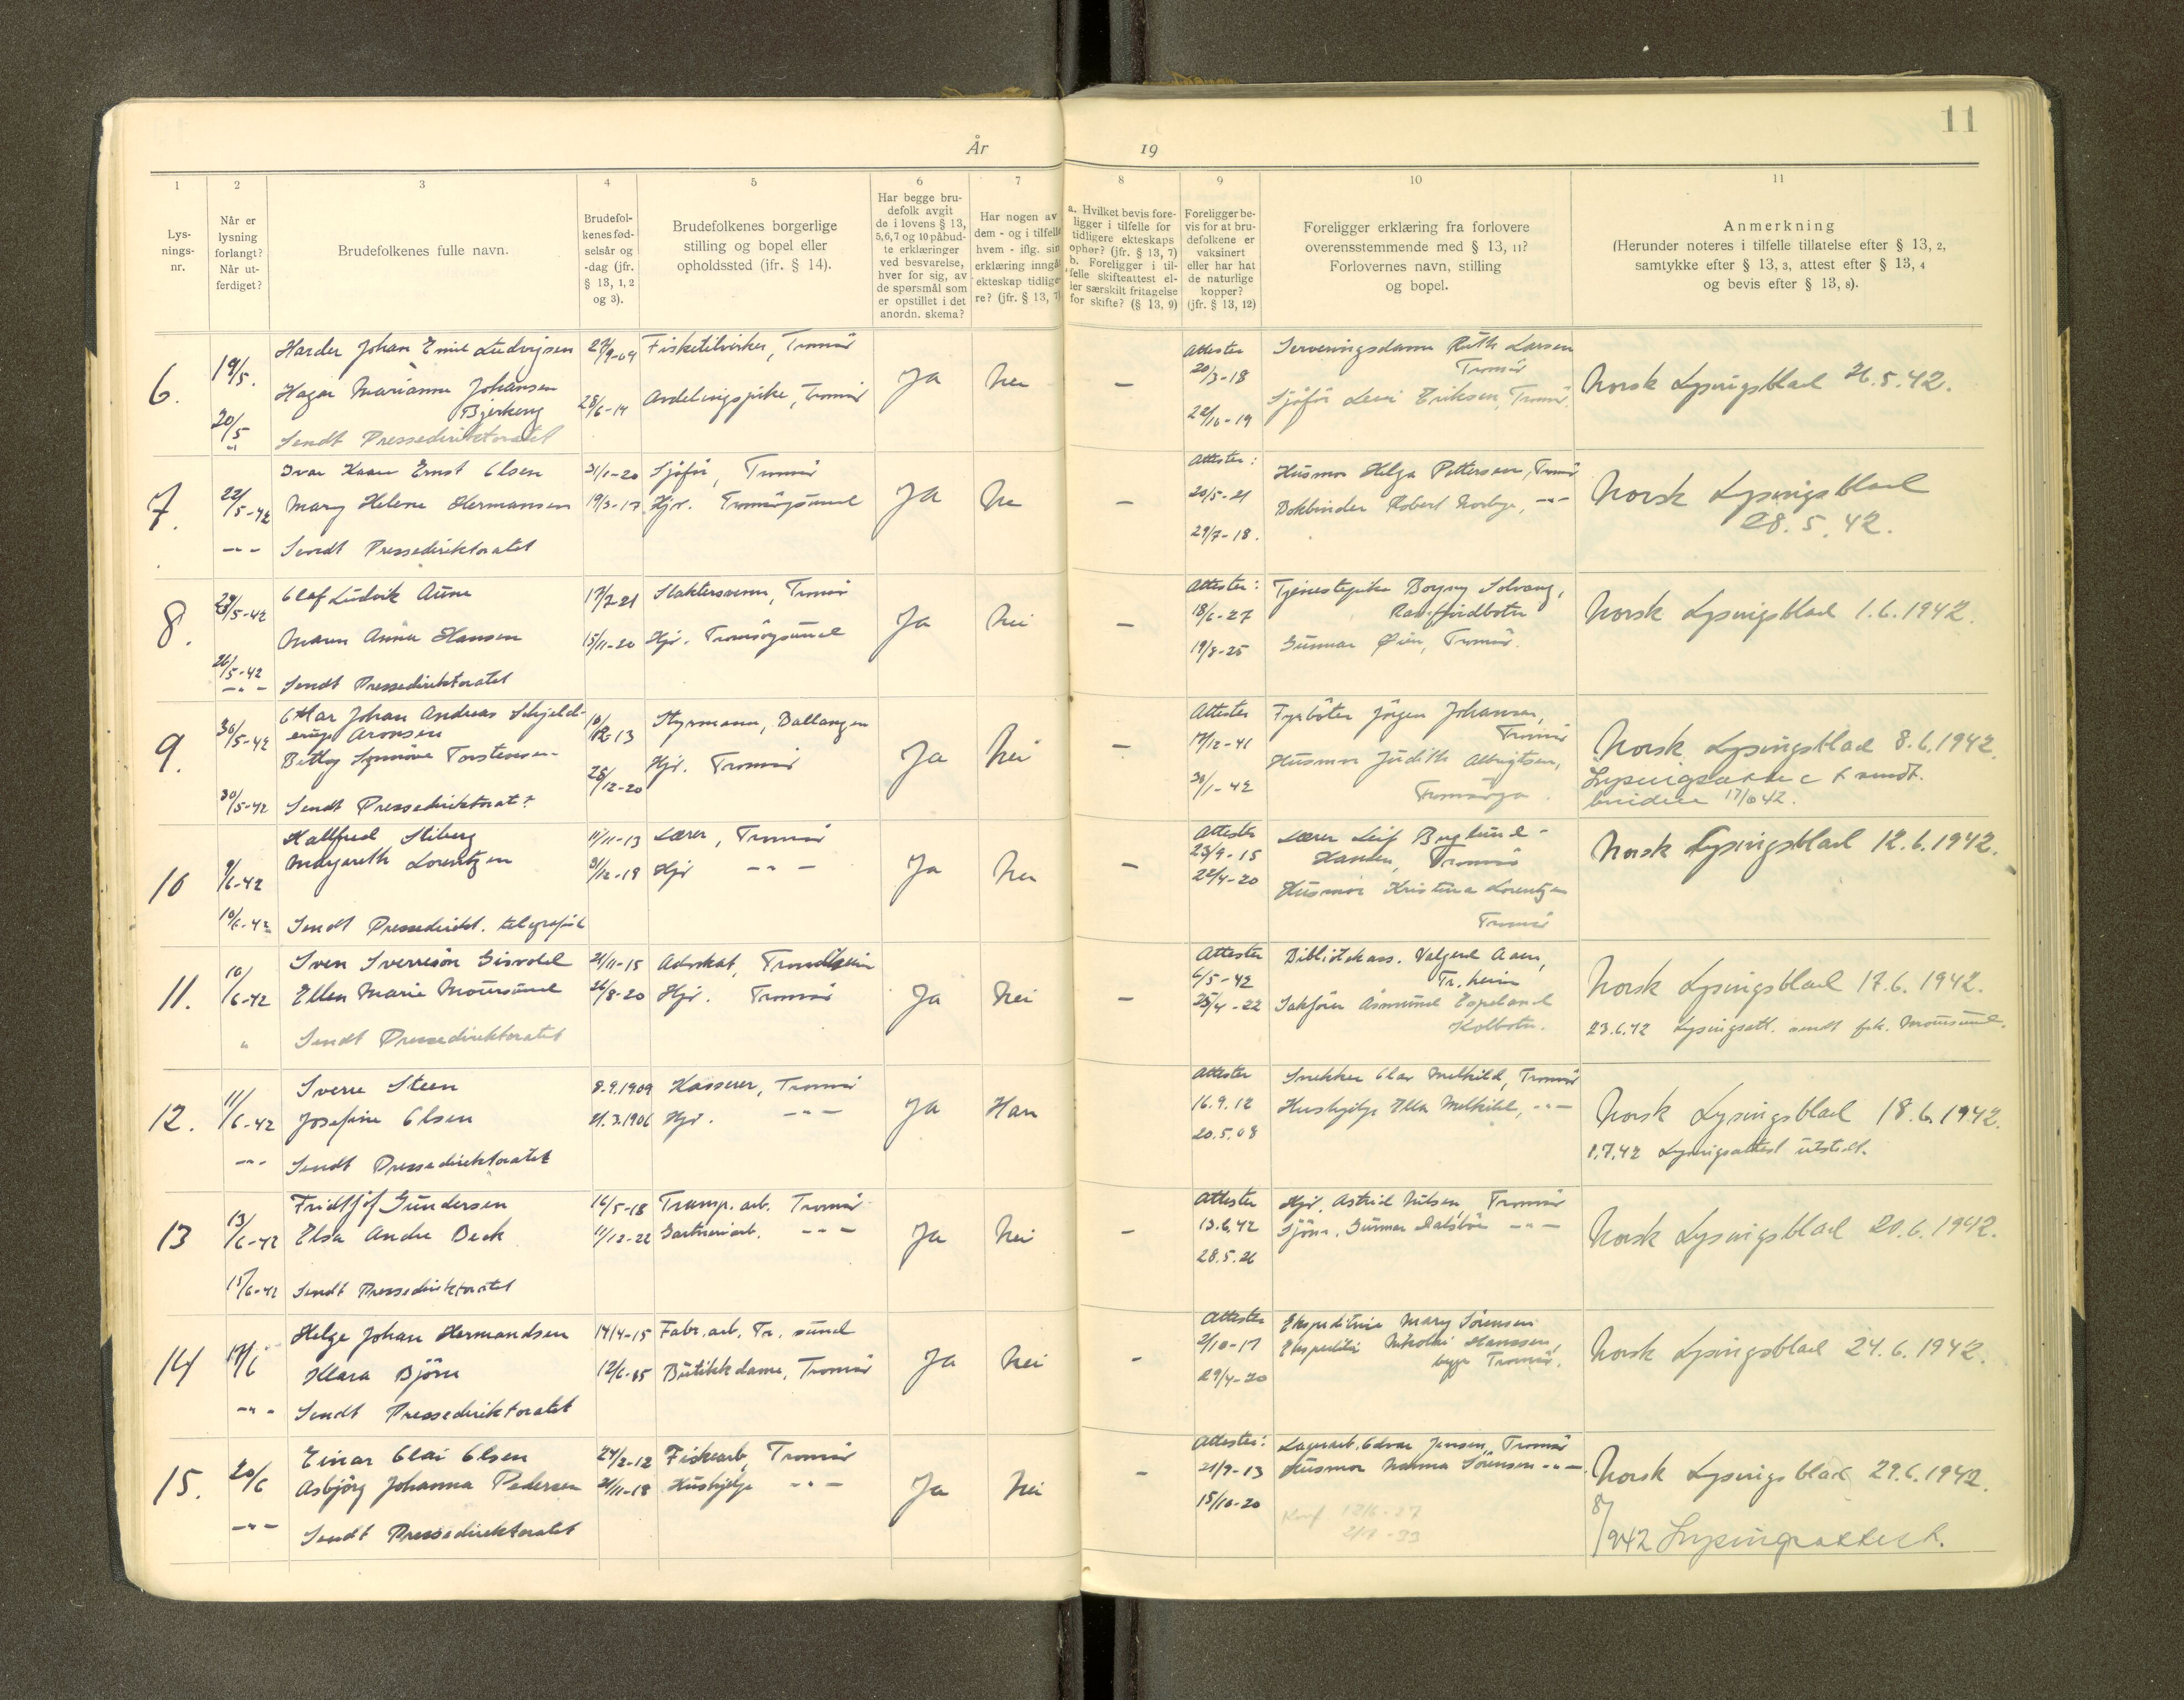 11
År 19
1
Lys-
nings-
nr.
2
Når er
lysning
forlangt?
Når ut-
ferdiget?
3
Brudefolkenes fulle navn.
4
Brudefol-
kenes fød-
selsår og
-dag (jfr.
§ 13, 1, 2
og 3).
5
Brudefolkenes borgerlige
stilling og bopel eller
opholdssted (jfr. § 14).
6
Har begge bru-
defolk avgit
de i lovens § 13,
5,6,7 og 10 påbud-
te erklæringer
ved besvarelse,
hver for sig, av
de spørsmål som
er opstillet i det
anordn. skema?
7
Har nogen av
dem - og i tilfelle
hvem - iflg. sin
erklæring inngåt
ekteskap tidlige-
re? (jfr. § 13, 7)
8
a. Hvilket bevis fore-
ligger i tilfelle for
tidligere ekteskaps
ophør? (jfr. § 13, 7)
b. Foreligger i til-
felle skifteattest el-
ler særskilt fritagelse
for skifte? (§ 13, 9)
9
Foreligger be-
vis for at bru-
defolkene er
vaksinert
eller har hat
de naturlige
kopper?
(jfr. § 13, 12)
10
Foreligger erklæring fra forlovere
overensstemmende med § 13, 11?
Forlovernes navn, stilling
og bopel.
11
Anmerkning
(Herunder noteres i tilfelle tillatelse efter § 13, 2,
samtykke efter § 13, 3, attest efter § 13, 4
og bevis efter § 13, 8).
6.
19/5.
20/5
Harder Johan Emil Ludvigsen
Hagar Marianne Johansen
Bjerkeng
Sendt Pressedirektoratet
27/9-09
28/6-14
Fisketilvirker, Tromsö
Avdelingspike, Tromsö
Ja
Nei
—
Attester
20/3-18
22/10-19
Serveringsdame Ruth Larsen
Tromsö
Sjåför Leni Eriksen, Tromsö.
Norsk Lysingsblad 26.5.42.
7.
22/5-42
-"-
Ivar Kaare Ernst Olsen
Mary Helene Hermansen
Sendt Pressedirektoratet
31/1-20
19/3-17
Sjåför, Tromsö
Hjv. Tromsöysund
Ja
Nei
—
Attester:
20/5-21
29/7-18.
Husmor Helga Pettersen, Tromsö
Bokbinder Robert Norbye, -"-
Norsk Lysingsblad
28.5.42.
8.
/5-42
26/5-42
-"-
Olaf Ludvik Aune
Maren Anna Hansen
Sendt Pressedirektoratet
17/7-21
15/11-20
Slaktersvenn, Tromsö
Hjv. Tromsöysund
Ja
Nei
—
Attester:
18/6-27
19/8-25
Tjenestepike Borgny Solvang,
Ramfjordbotn
Gunnar Öien, Tromsö.
Norsk Lysingsblad 1.6.1942.
9.
30/5-42
30/5-42
Othar Johan Andreas Schjeld-
erup Aronsen
Bitty Synnöve Torstensen
Sendt Pressedirektorat.
10/12-13
28/12-20
Styrmann, Ballangen
Hjv. Tromsö
Ja
Nei
—
Attester
17/12-41
30/1-42
Fyrböter Jörgen Johansen,
Tromsö
Husmor Judith Albrigtsen,
Tromsöya.
Norsk Lysingsblad 8.6.1942.
Lysingsattest sendt
17/6 42.
10
9/6-42
10/6-42
Hallfred Stiberg
Margareth Lorentzen
Sendt Pressedirekt. telegrafisk
11/11-13
31/12-19
Lærer, Tromsö
Hjv -"-
Ja
Nei
—
Attester
23/9-15
22/4-20
Lærer Leif Berglund-
Hansen, Tromsö
Husmor Kristina Lorentzen
Tromsö
Norsk Lysingsblad 12.6.1942.
11.
10/6-42
"
Sven Sverresön Gisvold
Ellen Marie Moursund
Sendt Pressedirektoratet
21/11-15
26/8-20
Advokat, Trondheim
Hjv. Tromsö
Ja
Nei
—
Attester
6/5-42
25/4-22
Bibliotekass. Valgerd Aaen,
Tr.heim
Sakförer Åsmund Espeland
Kolbotn.
Norsk Lysingsblad 17.6.1942.
23.6.42 Lysingsatt. sendt frk. Moursund.
12.
11/6-42
-"-
Sverre Steen
Josefine Olsen
Sendt Pressedirektoratet
8.9.1909
21.3.1906
Kasserer, Tromsö
Hjv. -"-
Ja
Han
Attester
16.9.12
20.5.08
Snekker Olav Melkild, Tromsö
Hushjelp Ella Melkild, -"-
Norsk Lysingsblad 18.6.1942.
1.7.42 Lysingsattest utstedt.
13
13/6-42
15/6-42
Fridtjof Gundersen
Elsa Andre Beck
Sendt Pressedirektoratet
16/5-18
11/12-22
Transp. arb. Tromsö
Gartneriarb. -"-
Ja
Nei
—
Attester
13.6.42
28.5.26
Hjv. Astrid Nilsen, Tromsö
Sjöm. Gunnar Dalsböe -"-
Norsk Lysingsblad 20.6.1942.
14
17/6
-"-
Helge Johan Hermandsen
Klara Björn
Sendt Pressedirektoratet
14/4-15
12/6-15
Fabr.arb. Tr. sund
Butikkdame, Tromsö
Ja
Nei
-
Attester
2/10-17
29/4-20
Ekspeditrise Mary Sörensen
Ekspeditör Nikolai Hanssen,
begge Tromsö.
Norsk Lysingsblad 24.6.1942.
15.
20/6
-"-
Einar Olai Olsen
Asbjörg Johanna Pedersen
Sendt Pressedirektoratet
24/2-12
21/11-18
Fiskearb, Tromsö
Hushjelp -"-
Ja
Nei
-
Attester:
21/9-13
15/10-20
Lagerarb. Edvar Jensen, Tromsö
Husmor Nanna Sörensen -"-
Konf 12/6-27
Norsk Lysingsblad 29.6.1942.
8/7
942 Lysingsattest.